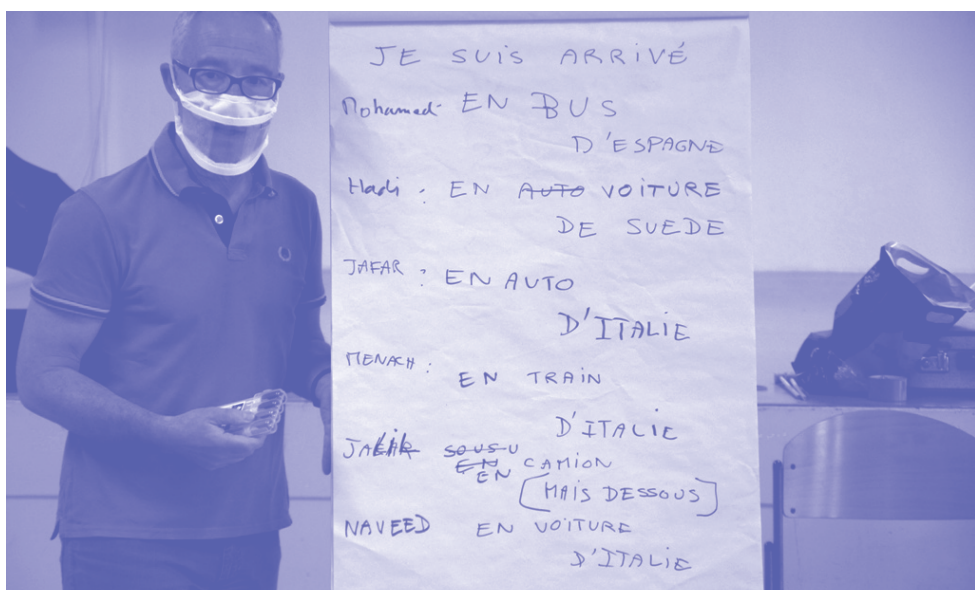 JE SUIS ARRIVÉ
Mohamed EN BUS
D'ESPAGNE
Hadi : EN AUTO VOITURE
DE SUEDE
JAFAR : EN AUTO
D'ITALIE
MENACH :
EN TRAIN
D'ITALIE
EN CAMION
[MAIS DESSOUS]
NAVEED EN VOITURE
D'ITALIE